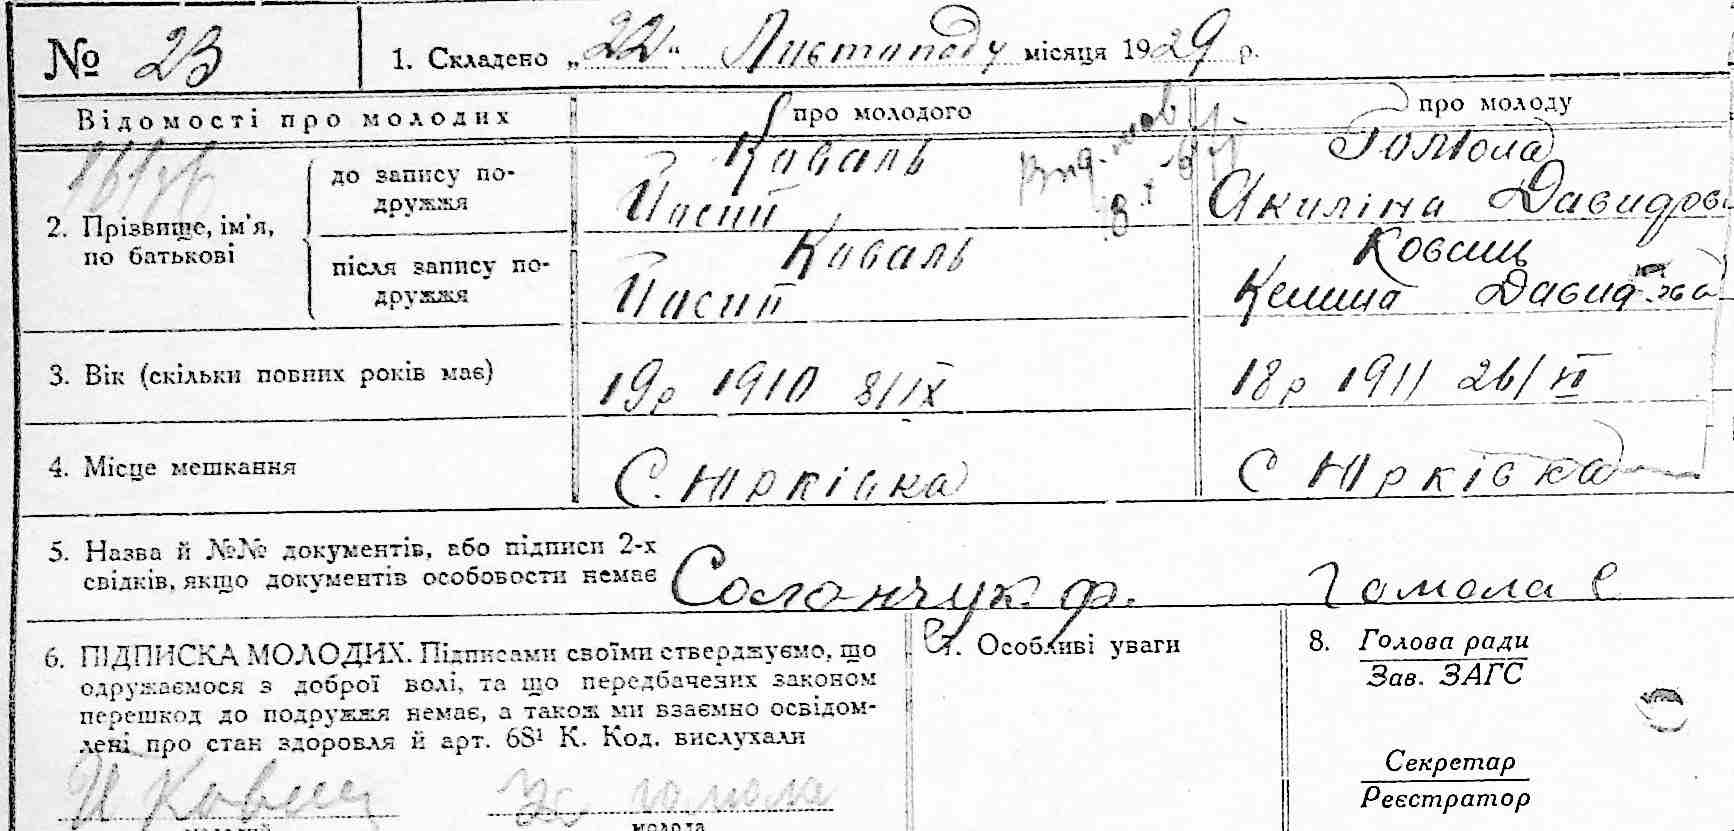 № 23
1. Складено „22“ Листопаду місяця 1929 р.
Відомості про молодих
про молодого
про молоду
2. Прізвище, ім'я, по батькові
до запису по-
дружжя
Коваль
Йосип
Гомола
Акиліна Давидов
після запису по-
дружжя
Коваль
Йосип
Коваль
Келина Давид
3. Вік (скільки повних років має)
19р 1910 8/IX
18р 1911 26/VI
4. Місце мешкання
С. Юрківка
С Юрківка
5. Назва й №№ документів, або підписи 2-х
свідків, якщо документів особовости немає
Солончук ф.
Гомола С
6. ПІДПИСКА МОЛОДИХ. Підписами своїми стверджуємо, що
одружаємося з доброї волі, та що передбачених законом
перешкод до подружжя немає, а також ми взаємно освідом-
лені про стан здоровля й арт. 68¹ К. Код. вислухали
И Коваль
гомола
молодий
молода
7. Особливі уваги
8. Голова ради
Зав. ЗАГС
Секретар
Реєстратор